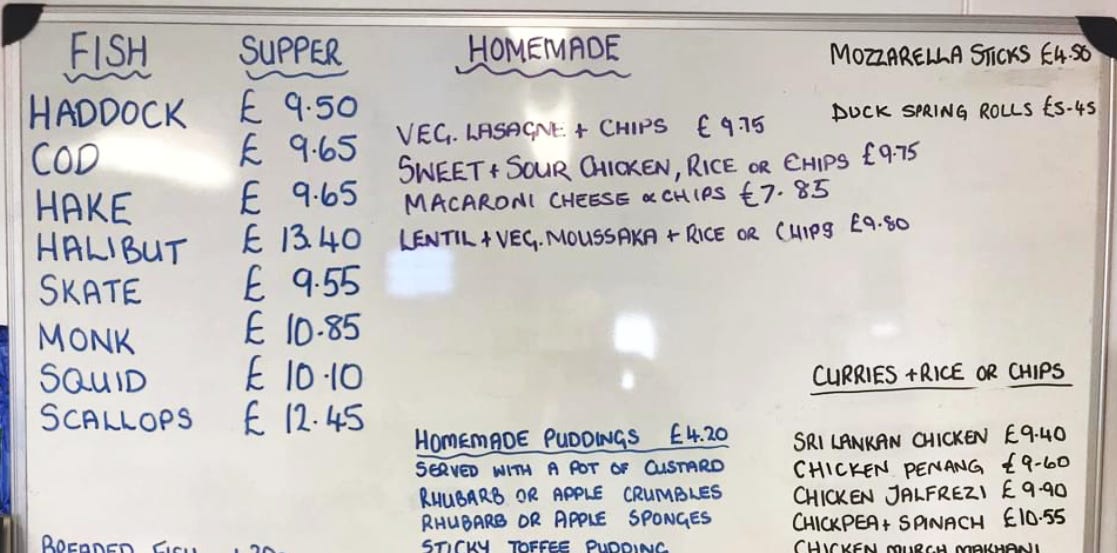 FISH SUPPER
HADDOCK £ 9.50
COD £ 9.65
HAKE £ 9.65
HALIBUT £ 13.40
SKATE £ 9.55
MONK £ 10.85
SQUID £ 10.10
SCALLOPS £ 12.45
BREADED FISH
HOMEMADE
VEG. LASAGNE + CHIPS £ 9.75
SWEET + SOUR CHICKEN, RICE OR CHIPS £9.75
MACARONI CHEESE & CHIPS £7.85
LENTIL + VEG. MOUSSAKA + RICE OR CHIPS £9.80
HOMEMADE PUDDINGS £4.20
SERVED WITH A POT OF CUSTARD
RHUBARB OR APPLE CRUMBLES
RHUBARB OR APPLE SPONGES
STICKY TOFFEE PUDDING
MOZZARELLA STICKS £4.50
DUCK SPRING ROLLS £5.45
CURRIES + RICE OR CHIPS
SRI LANKAN CHICKEN £9.40
CHICKEN PENANG £9.60
CHICKEN JALFREZI £9.90
CHICKPEA + SPINACH £10.55
CHICKEN MURGH MAKHANI